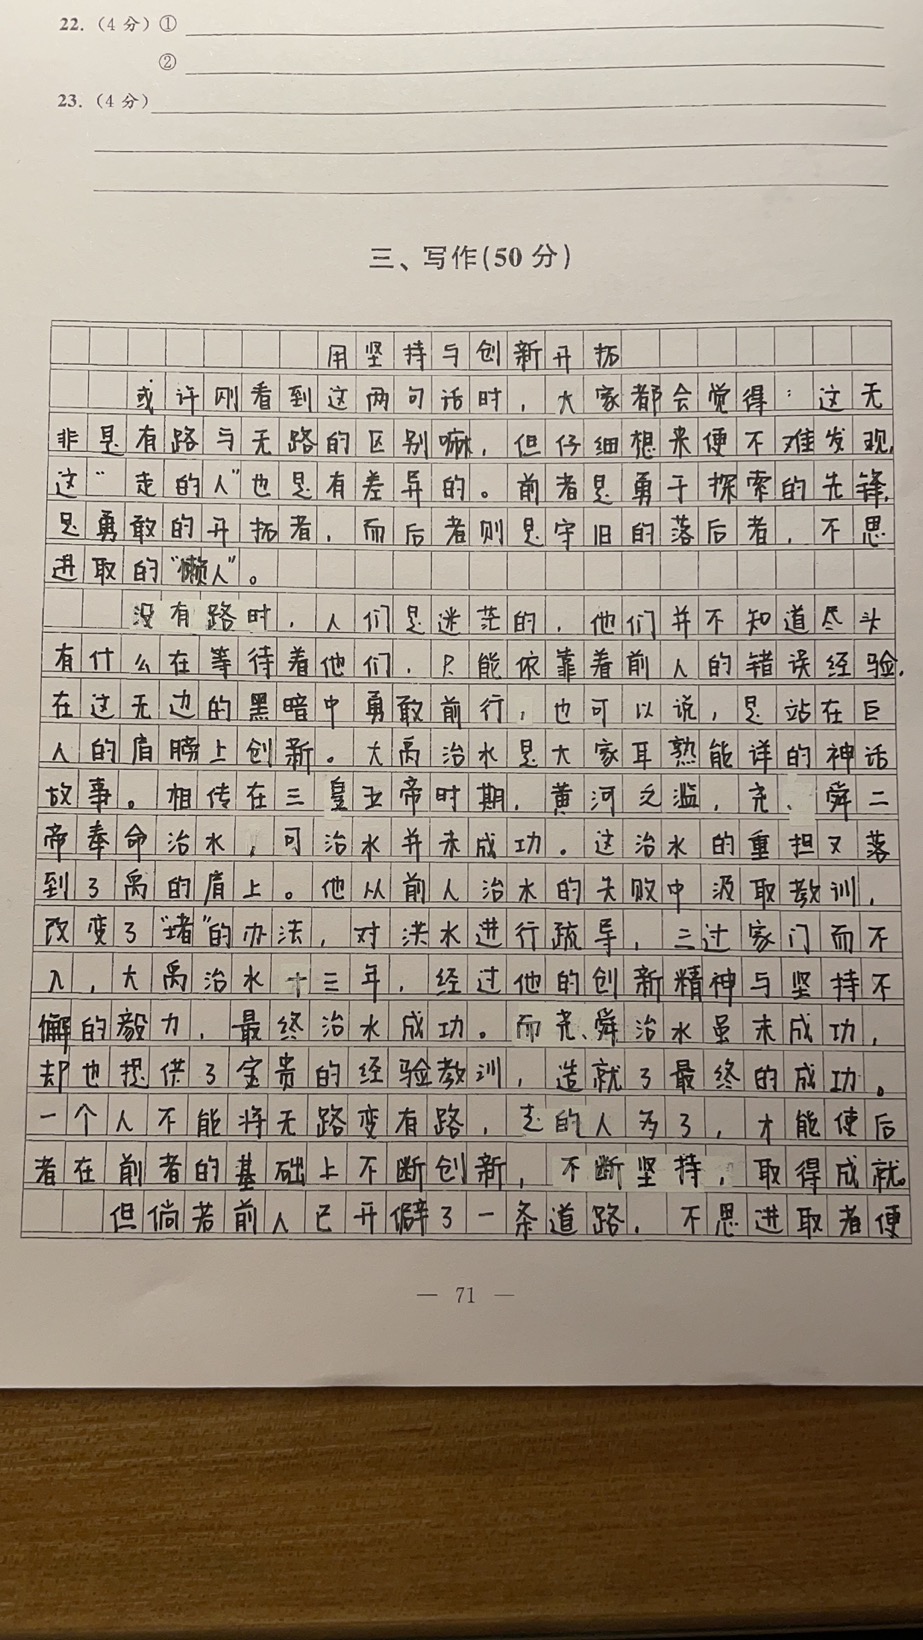 22.（4 分）①
②
23.（4 分）
三、写作（50 分）
用坚持与创新开拓
或许刚看到这两句话时，大家都会觉得：这无
非是有路与无路的区别嘛，但仔细想来便不难发现，
这“走的人”也是有差异的。前者是勇于探索的先锋，
是勇敢的开拓者，而后者则是守旧的落后者，不思
进取的“懒人”。
没有路时，人们是迷茫的，他们并不知道尽头
有什么在等待着他们，只能依靠着前人的错误经验，
在这无边的黑暗中勇敢前行，也可以说，是站在巨
人的肩膀上创新。大禹治水是大家耳熟能详的神话
故事。相传在三皇五帝时期，黄河之滥，尧、舜二
帝奉命治水，可治水并未成功。这治水的重担又落
到了禹的肩上。他从前人治水的失败中汲取教训，
改变了“堵”的办法，对洪水进行疏导，三过家门而不
入，大禹治水十三年，经过他的创新精神与坚持不
懈的毅力，最终治水成功。而尧、舜治水虽未成功，
却也提供了宝贵的经验教训，造就了最终的成功。
一个人不能将无路变有路，走的人多了，才能使后
者在前者的基础上不断创新，不断坚持，取得成就。
但倘若前人已开僻了一条道路，不思进取者便
— 71 —